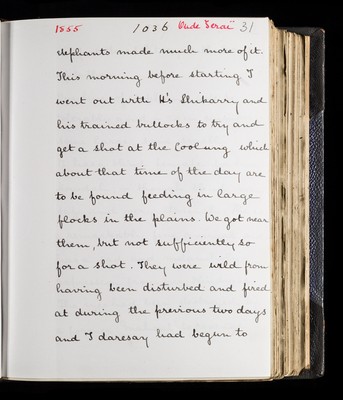 1855 1036 Oude Serai 31
elephants made much more of it.
This morning before starting I
went out with H's Shikarry and
his trained bullocks to try and
get a shot at the Coolung which
about that time of the day are
to be found feeding in large
flocks in the plains. We got near
them, but not sufficiently so
for a shot. They were wild from
having been disturbed and fired
at during the previous two days
and I daresay had begun to